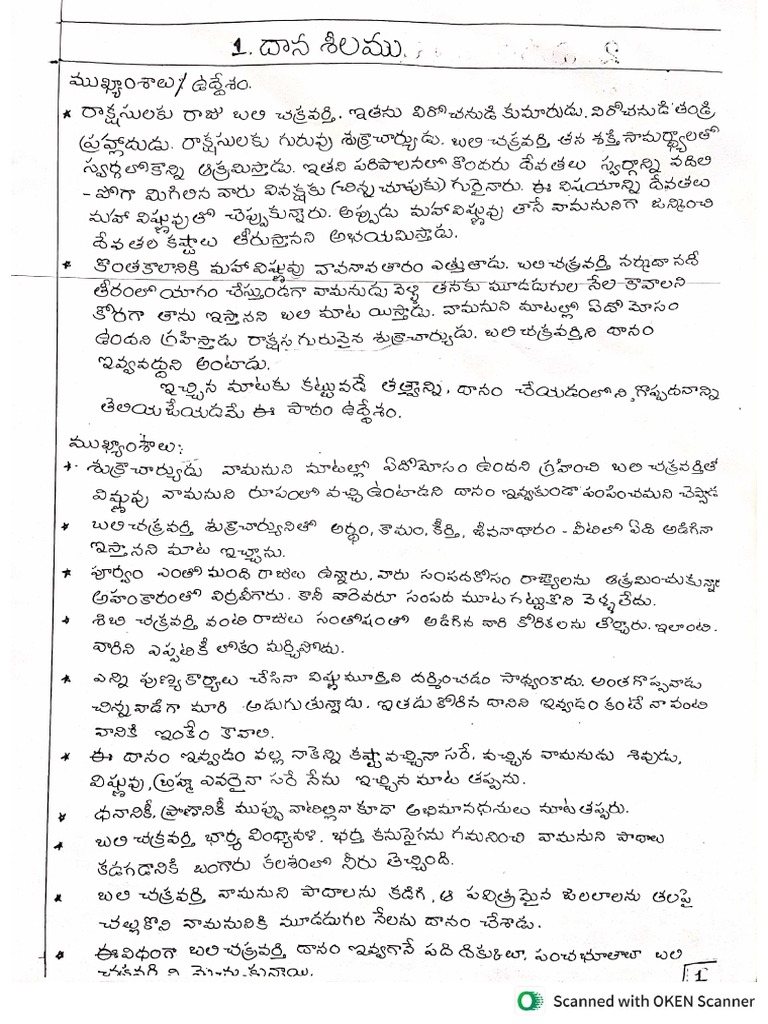 1. దాన శీలము
ముఖ్యాంశాలు/ ఉద్దేశం.
* రాక్షసులకు రాజు బలి చక్రవర్తి. ఇతను విరోచనుడి కుమారుడు. విరోచనుడి తండ్రి
ప్రహ్లాదుడు. రాక్షసులకు గురువు శుక్రాచార్యుడు. బలి చక్రవర్తి తన శక్తి సామర్థ్యాలతో
స్వర్గలోకాన్ని ఆక్రమిస్తాడు. ఇతని పరిపాలనలో కొందరు దేవతలు స్వర్గాన్ని వదిలి
- పోగా మిగిలిన వారు వివక్షకు (చిన్న చూపుకు) గురైనారు. ఈ విషయాన్ని దేవతలు
మహా విష్ణువుతో చెప్పుకున్నారు. అప్పుడు మహావిష్ణువు తానే వామనునిగా జన్మించి
దేవతల కష్టాలు తీరుస్తానని అభయమిస్తాడు.
* కొంతకాలానికి మహావిష్ణువు వావనావతారం ఎత్తుతాడు. బలి చక్రవర్తి నర్మదా నదీ
తీరంలో యాగం చేస్తుండగా వామనుడు వెళ్ళి తనకు మూడడుగుల నేల కావాలని
కోరగా తాను ఇస్తానని బలి మాట యిస్తాడు. వామనుని మాటల్లో ఏదో మోసం
ఉందని గ్రహిస్తాడు రాక్షస గురువైన శుక్రాచార్యుడు. బలి చక్రవర్తిని దానం
ఇవ్వవద్దని అంటాడు.
ఇచ్చిన మాటకు కట్టువడే తత్త్వాన్ని, దానం చేయడంలోని గొప్పదనాన్ని
తెలియజేయడమే ఈ పాఠం ఉద్దేశం.
ముఖ్యాంశాలు:
* శుక్రాచార్యుడు వామనుని మాటల్లో ఏదోమోసం ఉందని గ్రహించి బలి చక్రవర్తితో
విష్ణువు వామనుని రూపంలో వచ్చి ఉంటాడని దానం ఇవ్వకుండా పంపించమని చెప్పాడు
* బలి చక్రవర్తి శుక్రాచార్యునితో అర్థం, కామం, కీర్తి, జీవనాధారం - వీటిలో ఏది అడిగినా
ఇస్తానని మాట ఇచ్చాను.
* పూర్వం ఎంతో మంది రాజులు ఉన్నారు. వారు సంపదకోసం రాజ్యాలను ఆక్రమించుకున్నా
అహంకారంతో విర్రవీగారు. కానీ వారెవరూ సంపద మూట గట్టుకొని వెళ్ళలేదు.
* శిబి చక్రవర్తి వంటి రాజులు సంతోషంతో అడిగిన వారి కోరికలను తీర్చారు. ఇలాంటి
వారిని ఎప్పటికీ లోకం మర్చిపోదు.
* ఎన్ని పుణ్యకార్యాలు చేసినా విష్ణుమూర్తిని దర్శించడం సాధ్యంకాదు. అంతగొప్పవాడు
చిన్నవాడిగా మారి అడుగుతున్నాడు. ఇతడు కోరిన దానిని ఇవ్వడం కంటే నా వంటి
వానికి ఇంకేం కావాలి.
* ఈ దానం ఇవ్వడం వల్ల నాకెన్ని కష్టా వచ్చినా సరే, వచ్చిన వామనుడు శివుడు,
విష్ణువు, బ్రహ్మ ఎవరైనా సరే నేను ఇచ్చిన మాట తప్పను.
* ధనానికీ, ప్రాణానికీ ముప్పు వాటిల్లినా కూడా అభిమానధనులు మాటతప్పరు.
* బలి చక్రవర్తి భార్య వింధ్యావళి. భర్త కనుసైగను గమనించి వామనుని పాదాలు
కడగడానికి బంగారు కలశంలో నీరు తెచ్చింది.
* బలి చక్రవర్తి వామనుని పాదాలను కడిగి, ఆ పవిత్రమైన జలాలను తలపై
చల్లుకొని వామనునికి మూడడుగల నేలను దానం చేశాడు.
* ఈవిధంగా బలి చక్రవర్తి దానం ఇవ్వగానే పది దిక్కులూ, పంచభూతాలూ బలి
చక్రవర్తి ని మెచ్చుకున్నాయి.
1
Scanned with OKEN Scanner